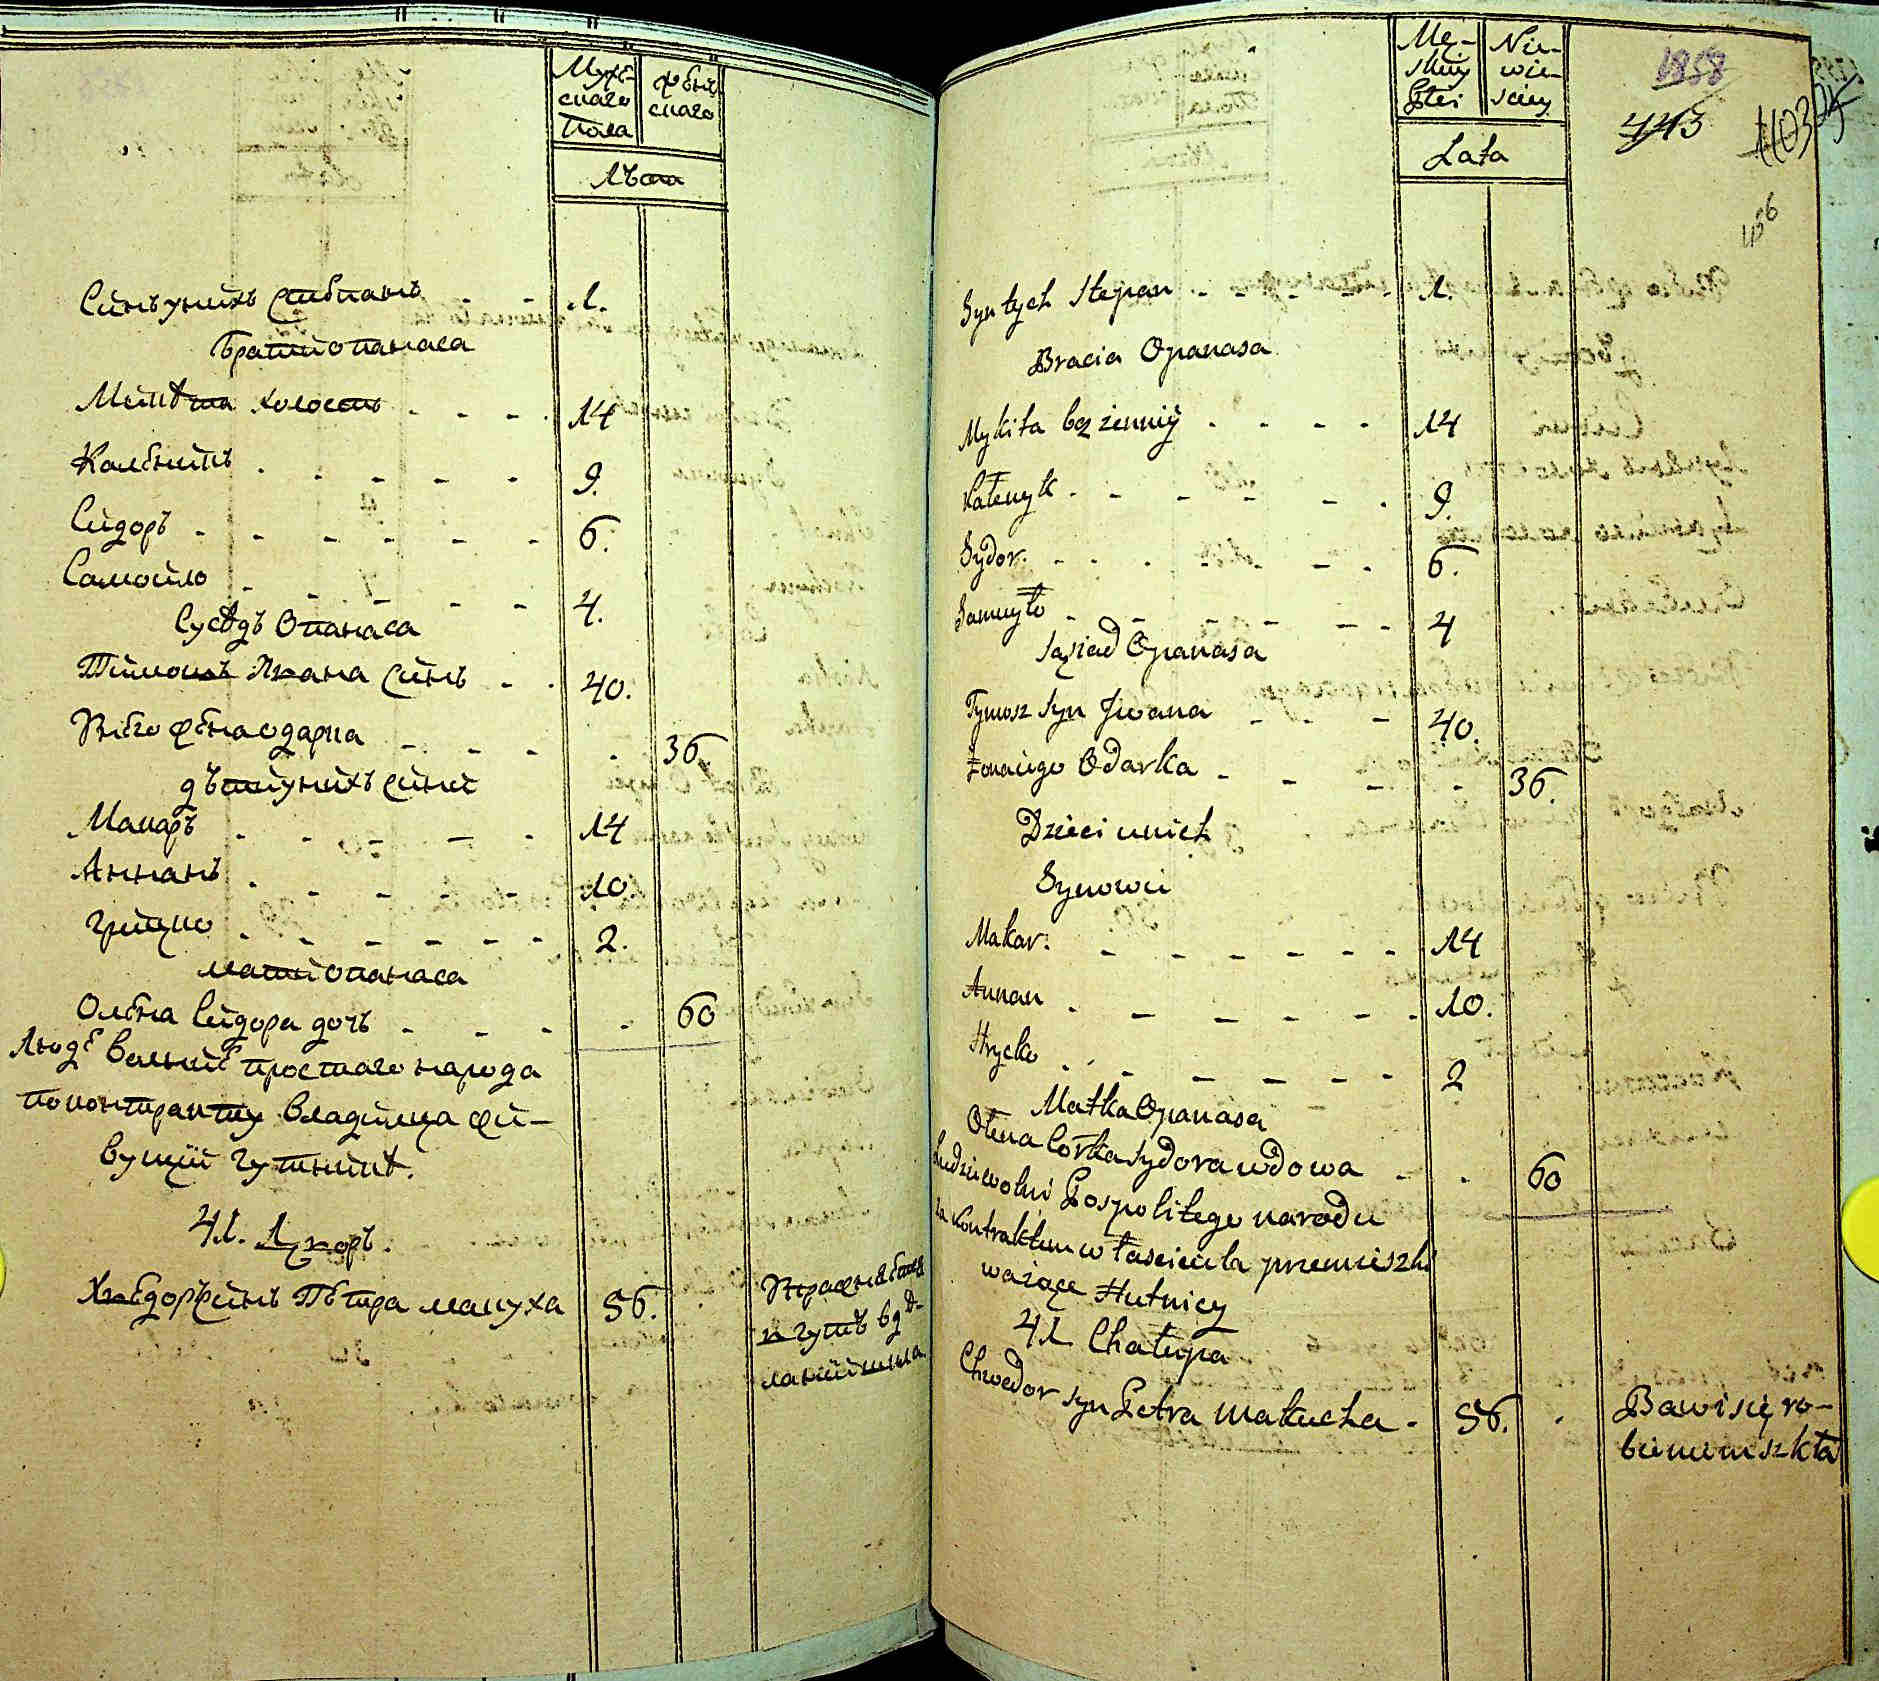 Мужескаго пола
женскаго
лѣта
Синъ у нихъ Степанъ 1.
брати Опанаса
Микѣта холостъ 14
Каленикъ 9.
Сидоръ 6.
Самойло 4.
Сусѣдъ Опанаса
Тимошъ Ивана синъ 40.
У него жена Одарка 36.
дѣти у нихъ сини
Макаръ 14
Аннанъ 10.
Грицко 2.
мати Опанаса
Олена Сидора дочь 60
Люде волние простаго народа
по контракту владѣлца жи-
вущии гутники.
41. Двор.
Хведор синъ Петра Макуха 56.
Męskiey Płci
Niewieściey
Lata
1858
443
456
Syn tych Stepan 1.
Bracia Opanasa
Mykita bezżenniy 14
Kałenyk 9.
Sydor. 6.
Samuyło 4
sąsiad Opanasa
Tymosz syn Jwana 40.
Żona iego Odarka 36.
Dzieci u nich
Synowie
Makar. 14
Annan 10.
Hrycko 2
Matka Opanasa
Ołena Corka Sydora wdowa 60
Ludzie wolni Pospolitego narodu
za Kontraktem właściciela przemieszki
waiące Hutnicy
41 Chałupa
Chwedor syn Petra Makucha 56.
Bawi się ro-
bieniem szkła